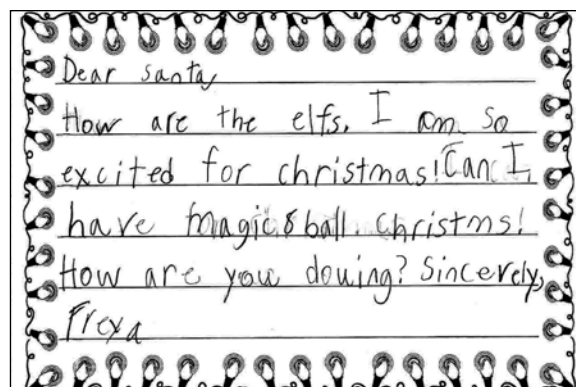 Dear santa,
How are the elfs. I am so
excited for christmas! Can I
have magic 8 ball. christms!
How are you douing? Sincerely,
Freya